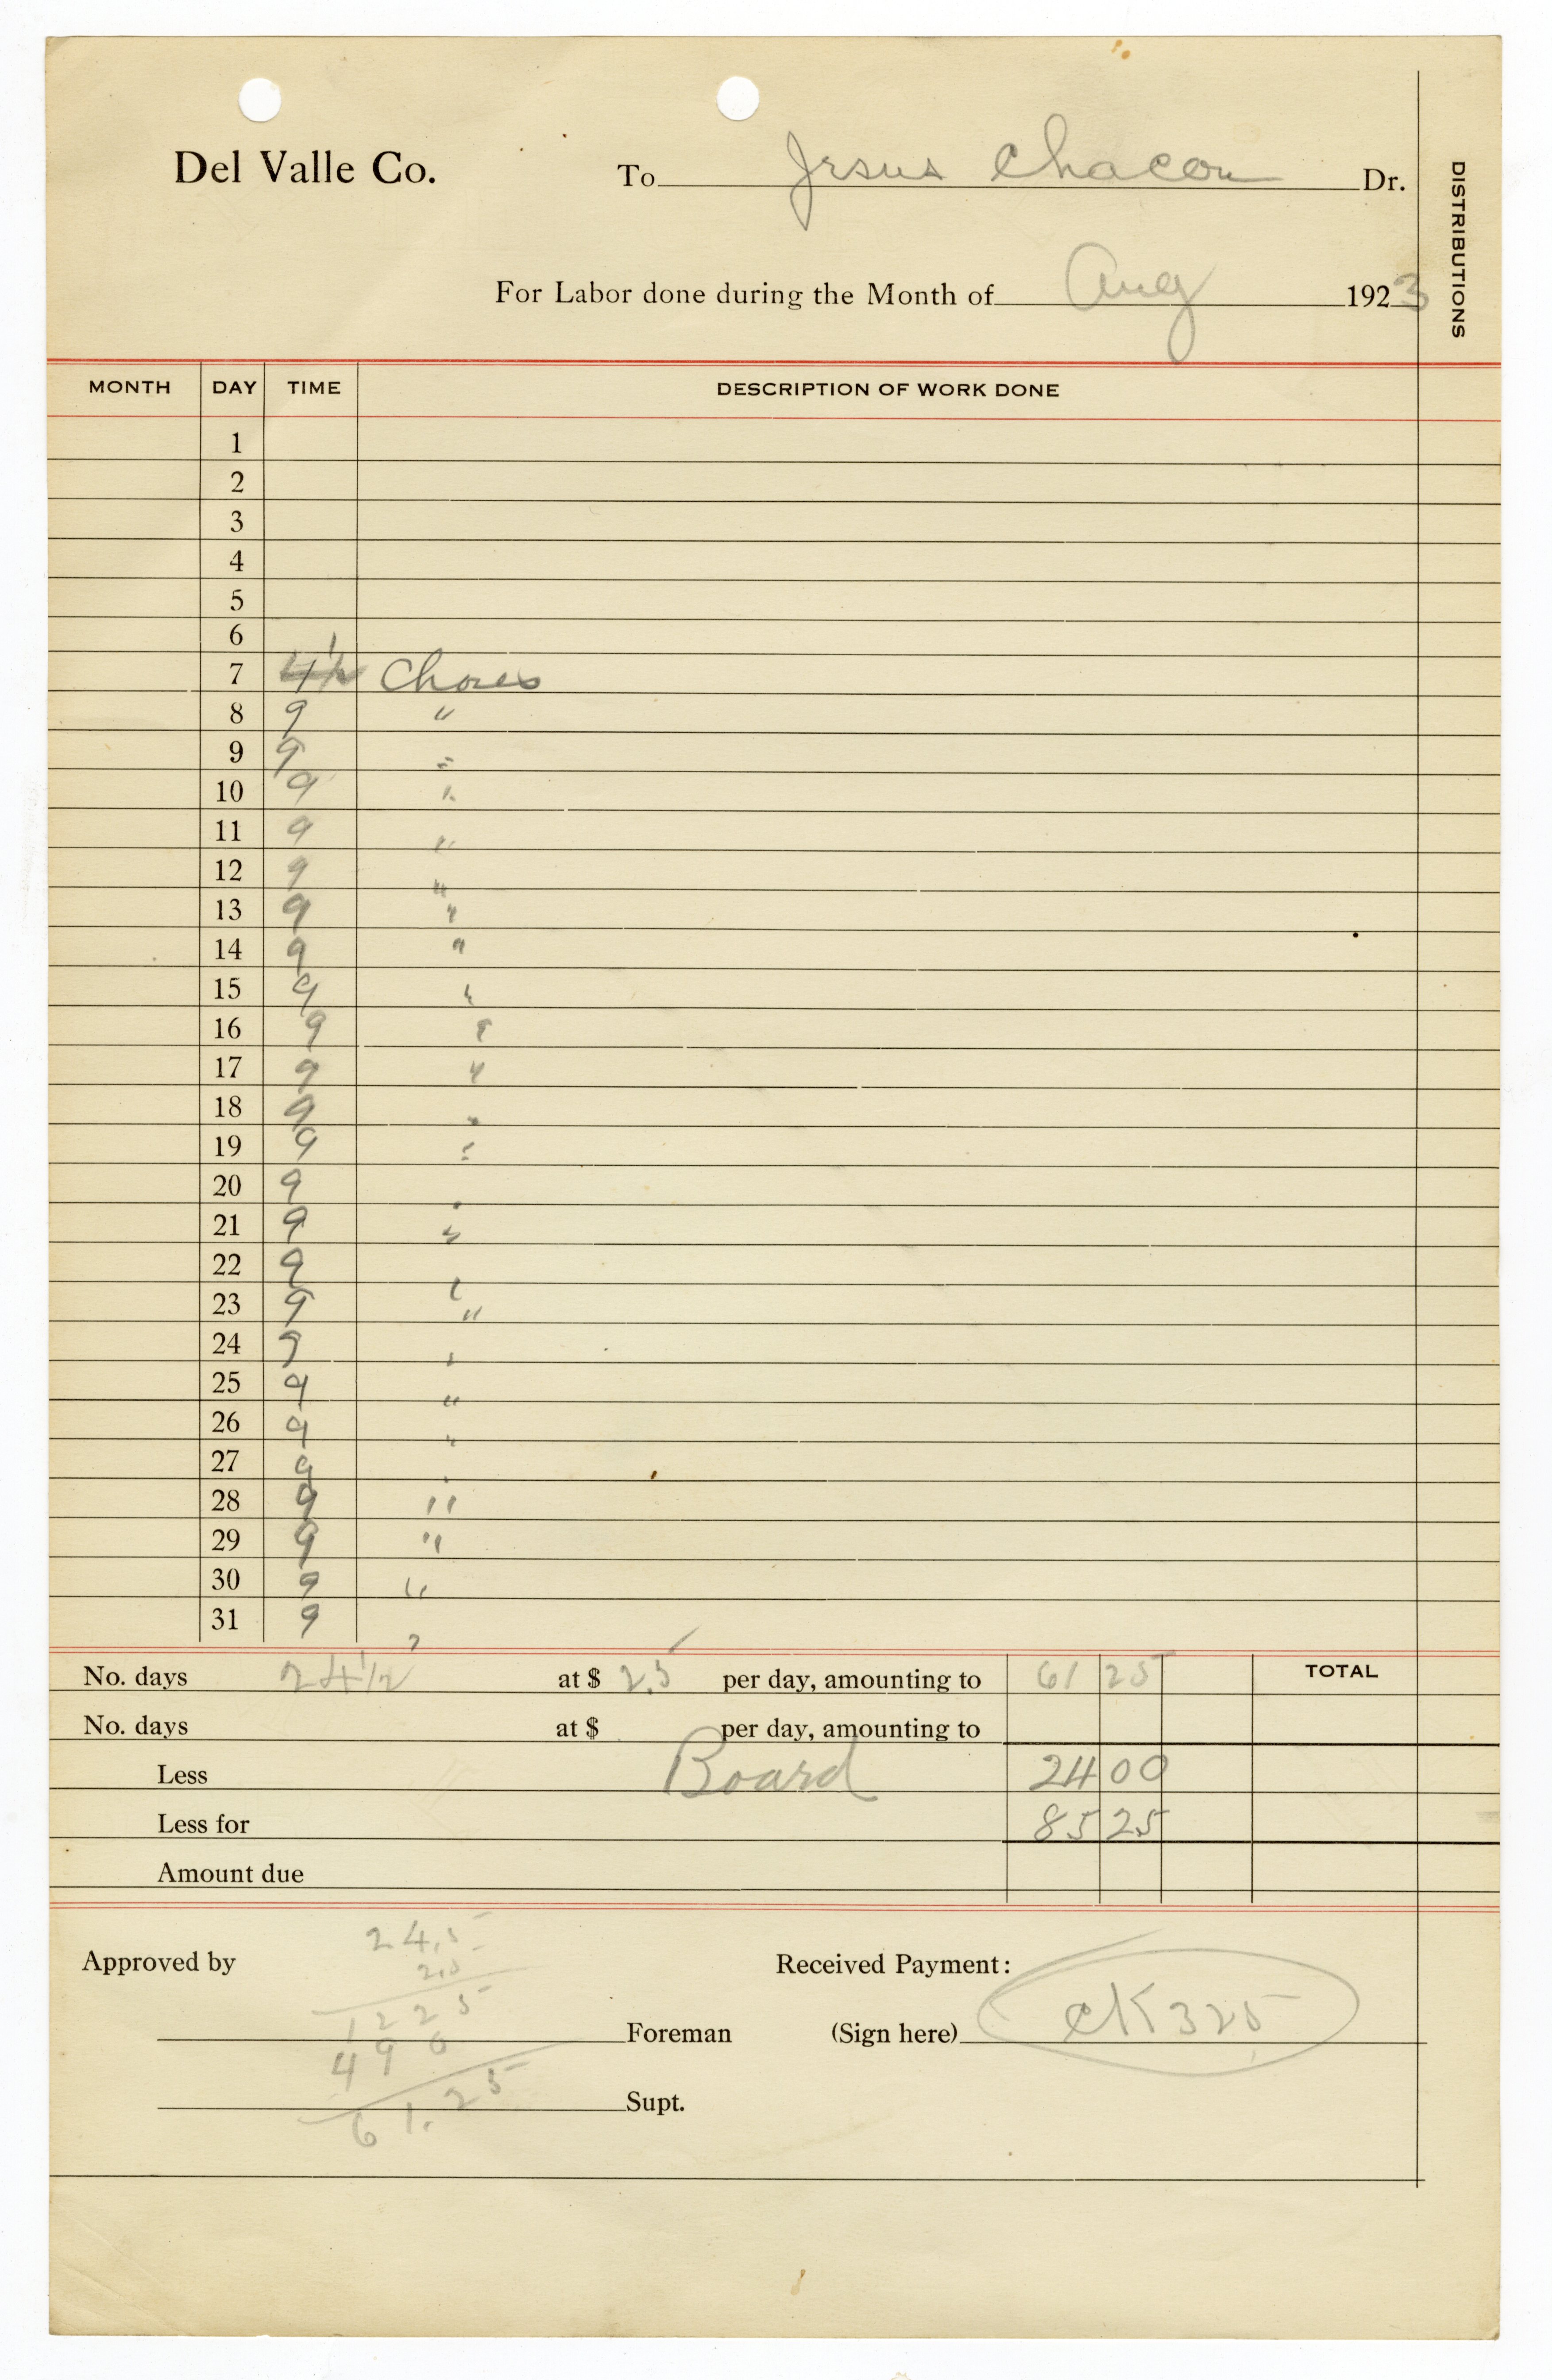 Del Valle Co. To Jesus Chacon Dr.
DISTRIBUTIONS
For Labor done during the Month of Aug 1923
MONTH DAY TIME DESCRIPTION OF WORK DONE
1
2
3
4
5
6
7 4 1/2 Chores
8 9 "
9 9 "
10 9 "
11 9 "
12 9 "
13 9 "
14 9 "
15 9 "
16 9 "
17 9 "
18 9 "
19 9 "
20 9 "
21 9 "
22 9 "
23 9 "
24 9 "
25 9 "
26 9 "
27 9 "
28 9 "
29 9 "
30 9 "
31 9 "
No. days 24 1/2 at $ 2.5 per day, amounting to 61 25 TOTAL
No. days at $ per day, amounting to
Less Board 24 00
Less for 85 25
Amount due
24.5
2.5
1225
490
61.25
Approved by Received Payment:
Foreman (Sign here) CK 325
Supt.